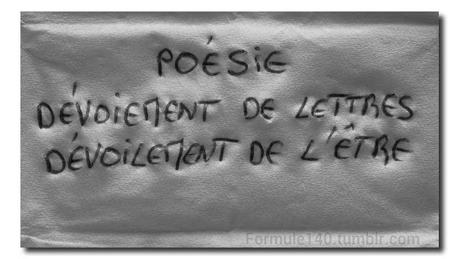 POÉSIE
DÉVOIEMENT DE LETTRES
DÉVOILEMENT DE L'ÊTRE
Formule140.tumblr.com